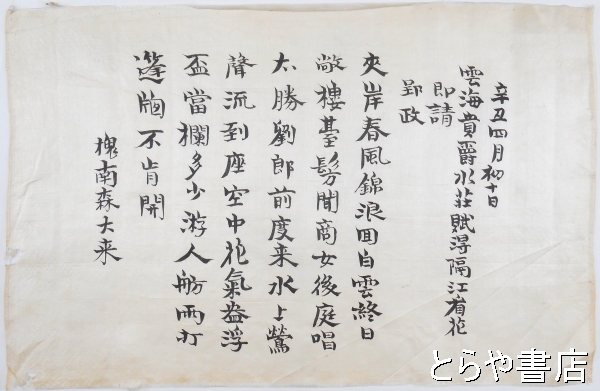 辛丑四月初十日
雲海貴爵水荘賦得隔江看花
即請
郢政
夾岸春風錦浪囬白雲終日
敞樓基髣聞商女後庭唱
太勝劉郎前度来水上鶯
聲流到座空中花氣盎浮
盃當欄多少游人舫両打
篷牕不肯開
槐南森大来
とらや書店